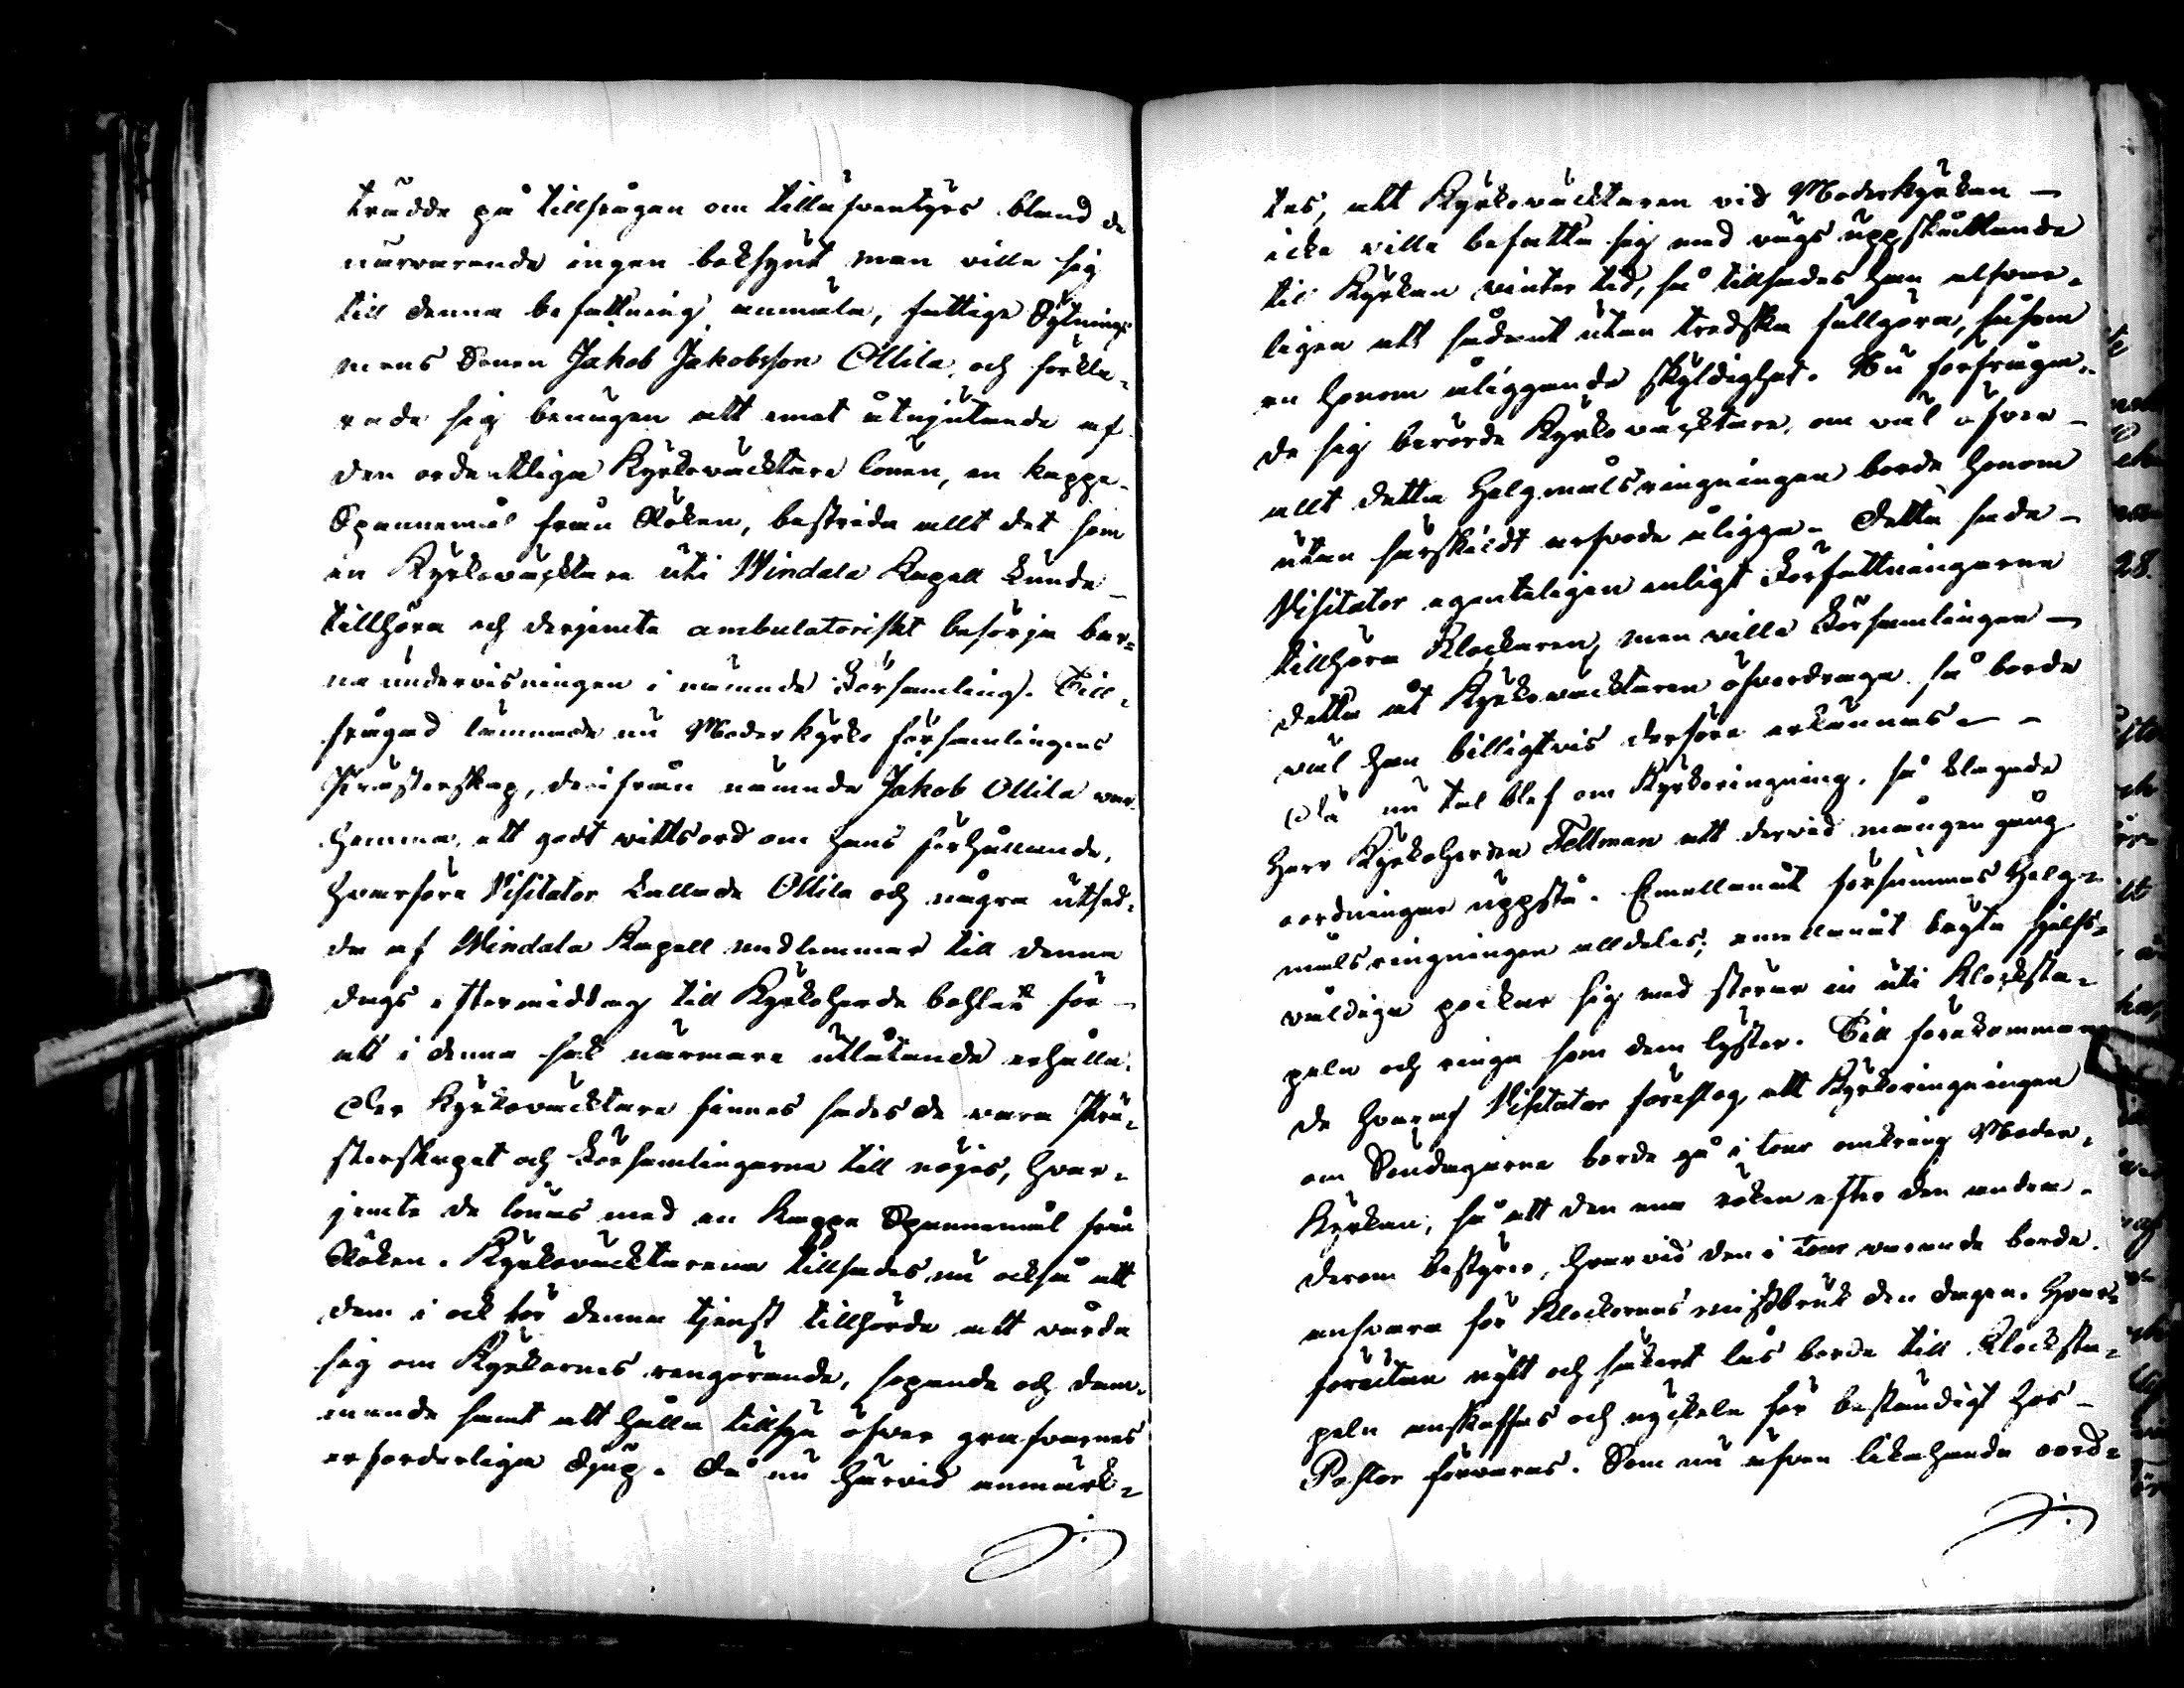 trädde på tillfrågan om tilläfventyrs bland de
närvarande ingen boksynt man ville sig
till denna befattning anmäla, fattige Sytnings
mans Sonen Jakob Jakobsson Ollila, och förkla-
rade sig benägen att emot åtnjutande af
den ordentliga Kyrkoväcktare lönen, en kappe
Spannemål från Röken, bestrida allt det som
en Kyrkoväcktare uti Windala Kapell kunde
tillhöra och derjemte ambulatoriskt besörja bar-
na undervisningen i nämnde Församling. Till-
frågad lämnade nu Moderkyrko församlingens
Prästerskap, derifrån nämnde Jakob Ollila var
hemma, ett godt vittsord om hans förhållande,
hvarföre Visitator kallade Ollila och några utsed-
de af Windala Kapell medlemmar till denne
dags eftermiddag till Kyrkoherde bohlet för
att i denna sak närmare utlåtande erhålla.
De Kyrkoväcktare finnes sades de vara Prä-
sterskapet och Församlingarne till nöjes, hvar-
jemte de lönas med en Kappe Spannemål från
Röken. Kyrkovacktarena tillsades nu också att
dem i och för denna tjenst tillhörde att vårda
sig om Kyrkornes rengörande, sopande och dam-
mande samt att hålla tillsyn öfver grafvarnes
erforderliga djup. Då nu härvid anmärk-
tes, att Kyrkoväcktaren vid Moderkyrkan
icke ville befatta sig med vägs uppskottande
til Kyrkan vinter tid, så tillsades han alfvar-
ligen att sådant utan tredska fullgöra, såsom
en honom åliggande skyldighet. Nu förfråga-
de sig berörde Kyrkoväcktare, om väl öfver
allt detta Helgmålsringningen borde honom
utan särskildt arfvode åligga. Detta sade
Visitator egenteligen enligt Författningarne
tillhöra Klockaren, men ville Församlingen
detta åt Kyrkoväcktaren öfverdraga så borde
väl han billigtvis derföre erkännas
Då nu tal blef om Kyrkoringning, så klagade
Herr Kyrkoherden Fellman att dervid mången gång
oordningar uppstå. Emellanåt försummas Helg-
målsringningen alldeles; emellanåt begta sjelfs-
våldiga pockar sig med störar in uti Klocksta-
peln och ringa som dem lyster. Till förekomman
de hvaraf Visitator föreslog, att Kyrkoringningen
om Söndagarne borde gå i tour omkring Moder-
Kyrkan, så att den ena röken efter den andra
derom bestyrer, hvarvid den i tour varande borde
ansvara för Klockornas missbruk den dagen. Hvar-
förutan nytt och säkert lås borde till Klocksta-
peln anskaffas och nyckeln för beständigt hos
Pastor förvaras. Som nu äfven likahanda oord-